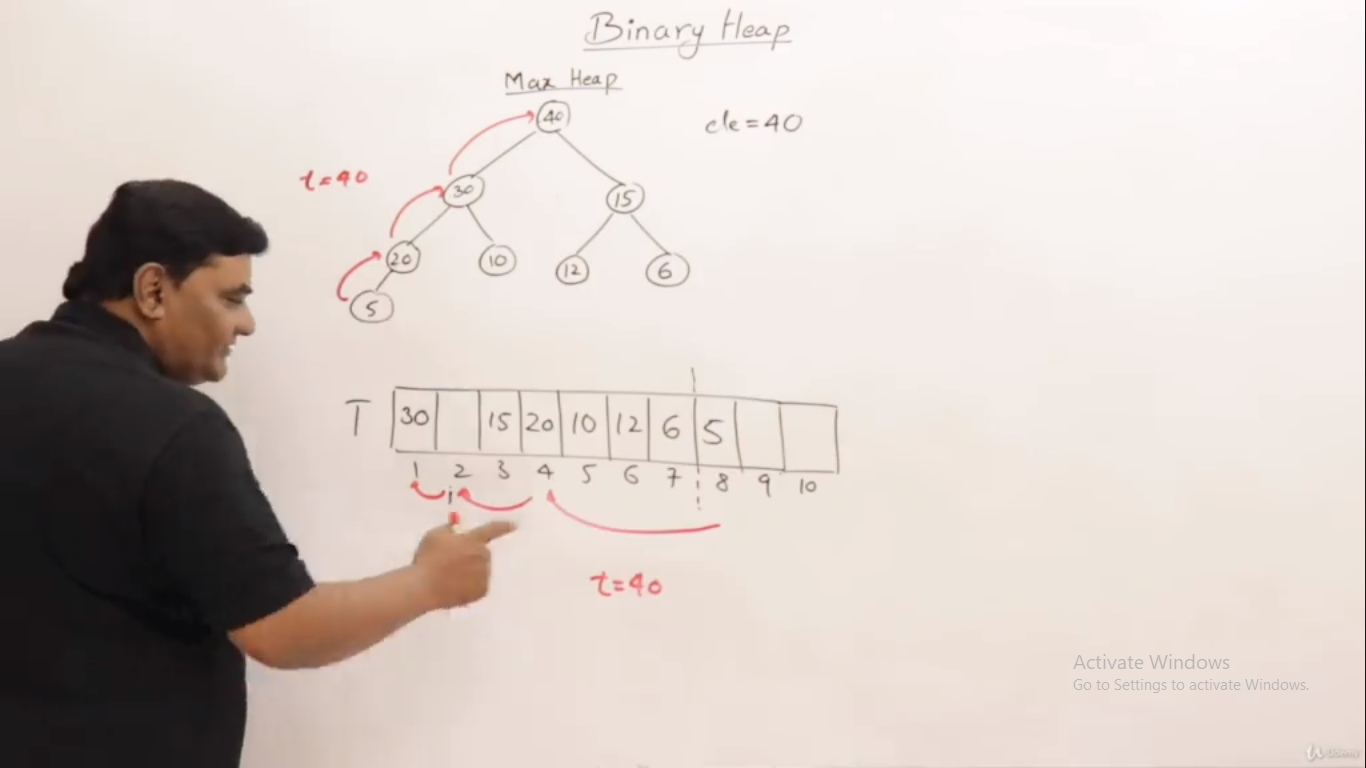 Binary Heap
Max Heap
40
ele=40
t=40
30
15
20
10
12
6
5
T 30 15 20 10 12 6 5
1 2 3 4 5 6 7 8 9 10
i
t=40
Activate Windows
Go to Settings to activate Windows.
Udemy